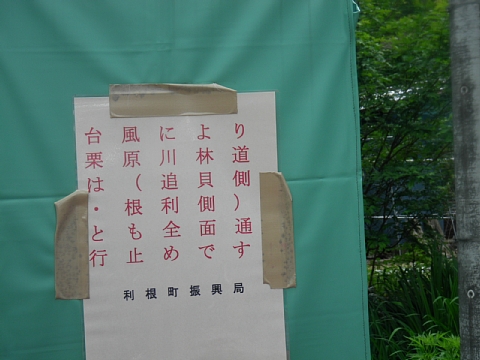 台風により
栗原川林道
は(追貝側
・根利側)
とも全面通
行止めです
利根町振興局